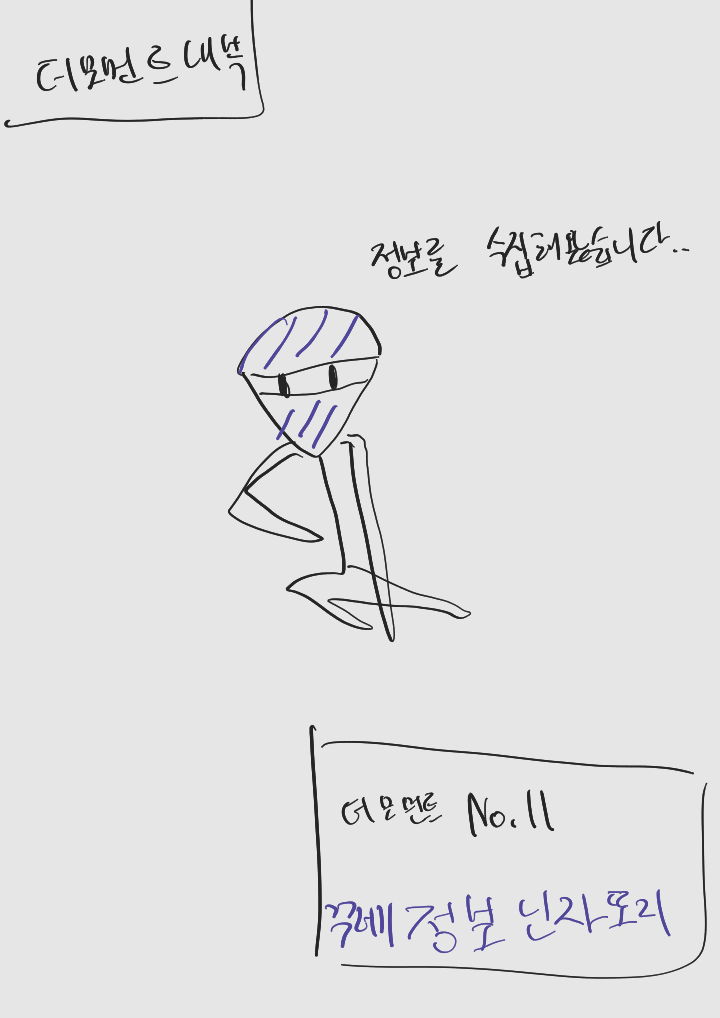 더모먼트 내부
정보를 수집해왔습니다..
더모먼트 No.11
정보 닌자또리